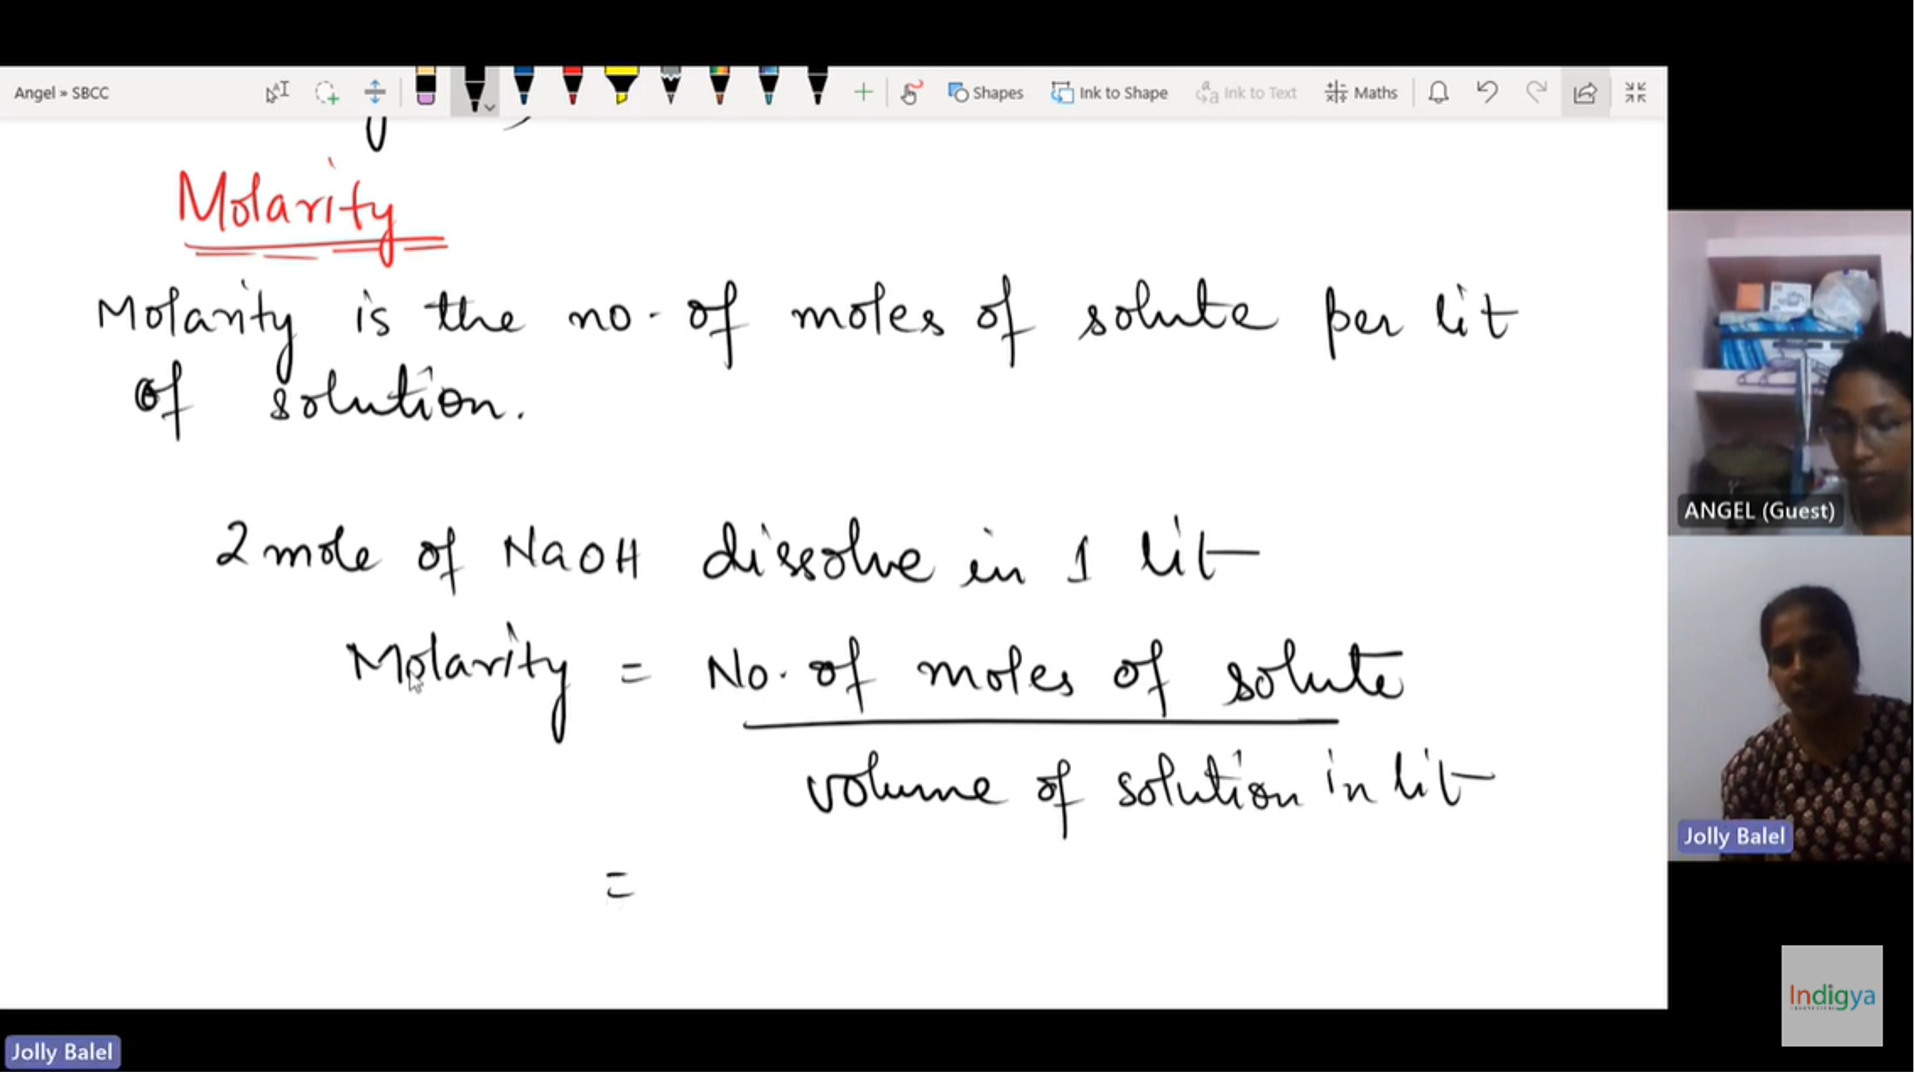 Angel » SBCC
Shapes
Ink to Shape
Ink to Text
Maths
Molarity
Molarity is the no. of moles of solute per lit
of solution.
2 mole of NaOH dissolve in 1 lit
Molarity = No. of moles of solute
volume of solution in lit
=
ANGEL (Guest)
Jolly Balel
Indigya
Jolly Balel